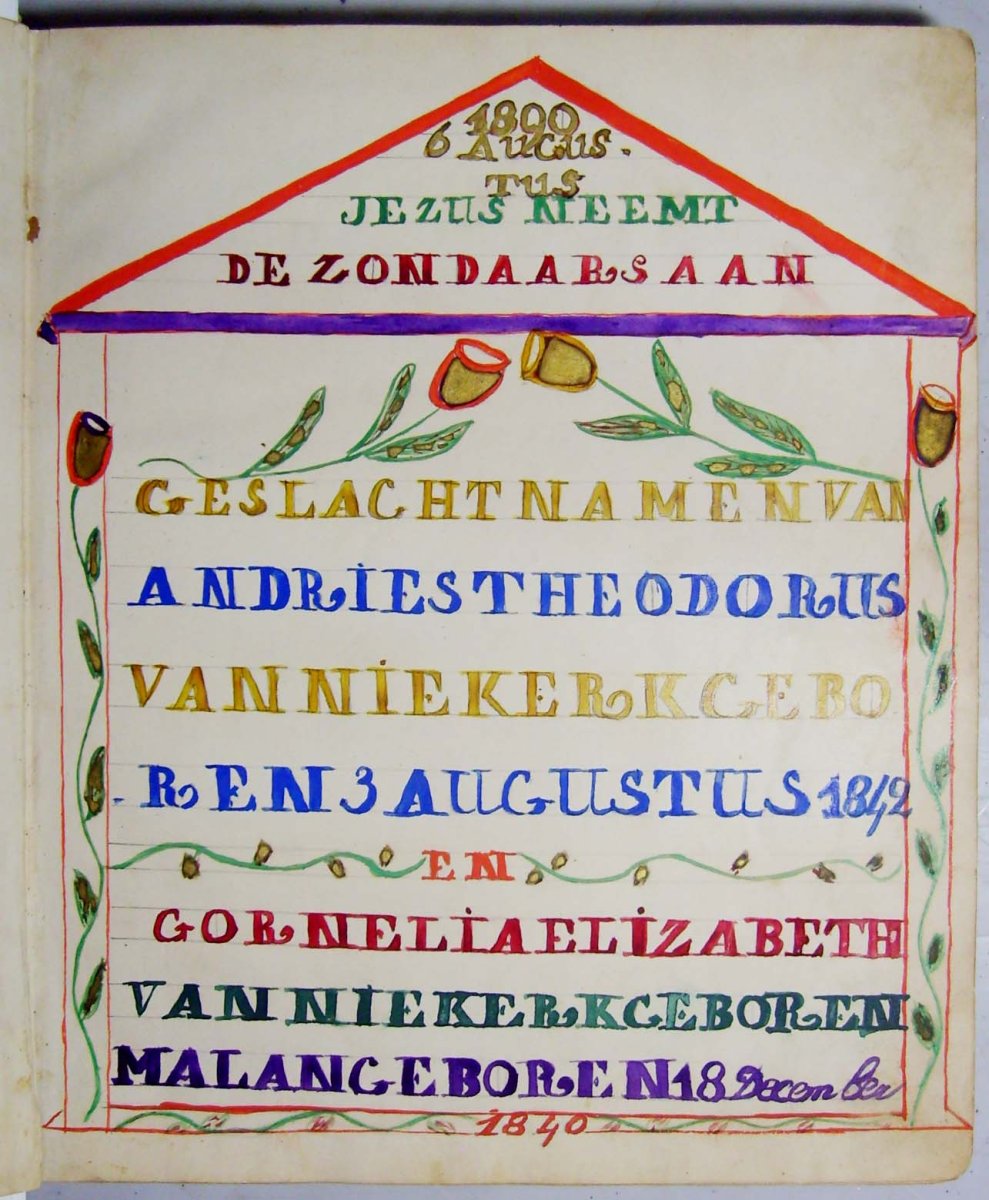 1800
6 AUGUS.
TUS
JEZUS NEEMT
DE ZONDAARS AAN
GESLACHTNAMEN VAN
ANDRIES THEODORUS
VAN NIEKERK GEBO
REN 3 AUGUSTUS 1842
EN
GORNELIA ELIZABETH
VAN NIEKERK GEBOREN
MALAN GEBOREN 18 December
1840